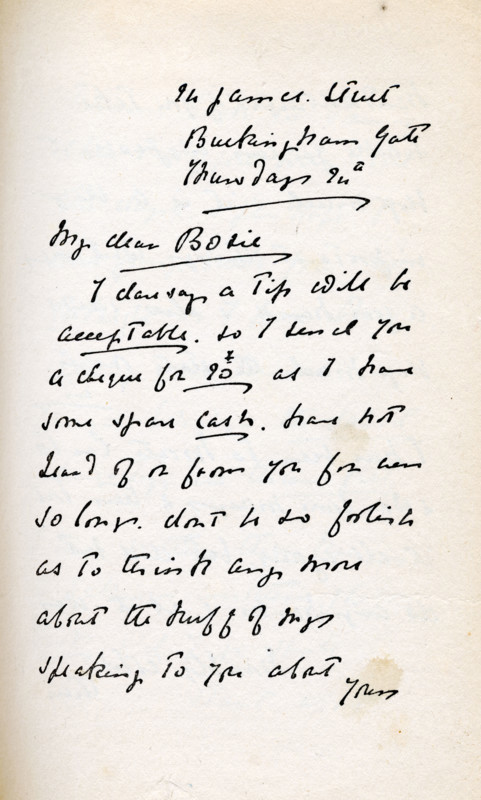 James. Street
Buckingham Gate
Thursday
My dear Bosie
I daresay a Tip will be
acceptable. so I send you
a cheque for £ as I have
some spare Cash. have not
heard of or from you for ever
so long. dont be so foolish
as to think any more
about the huff of my
speaking to you about
yours